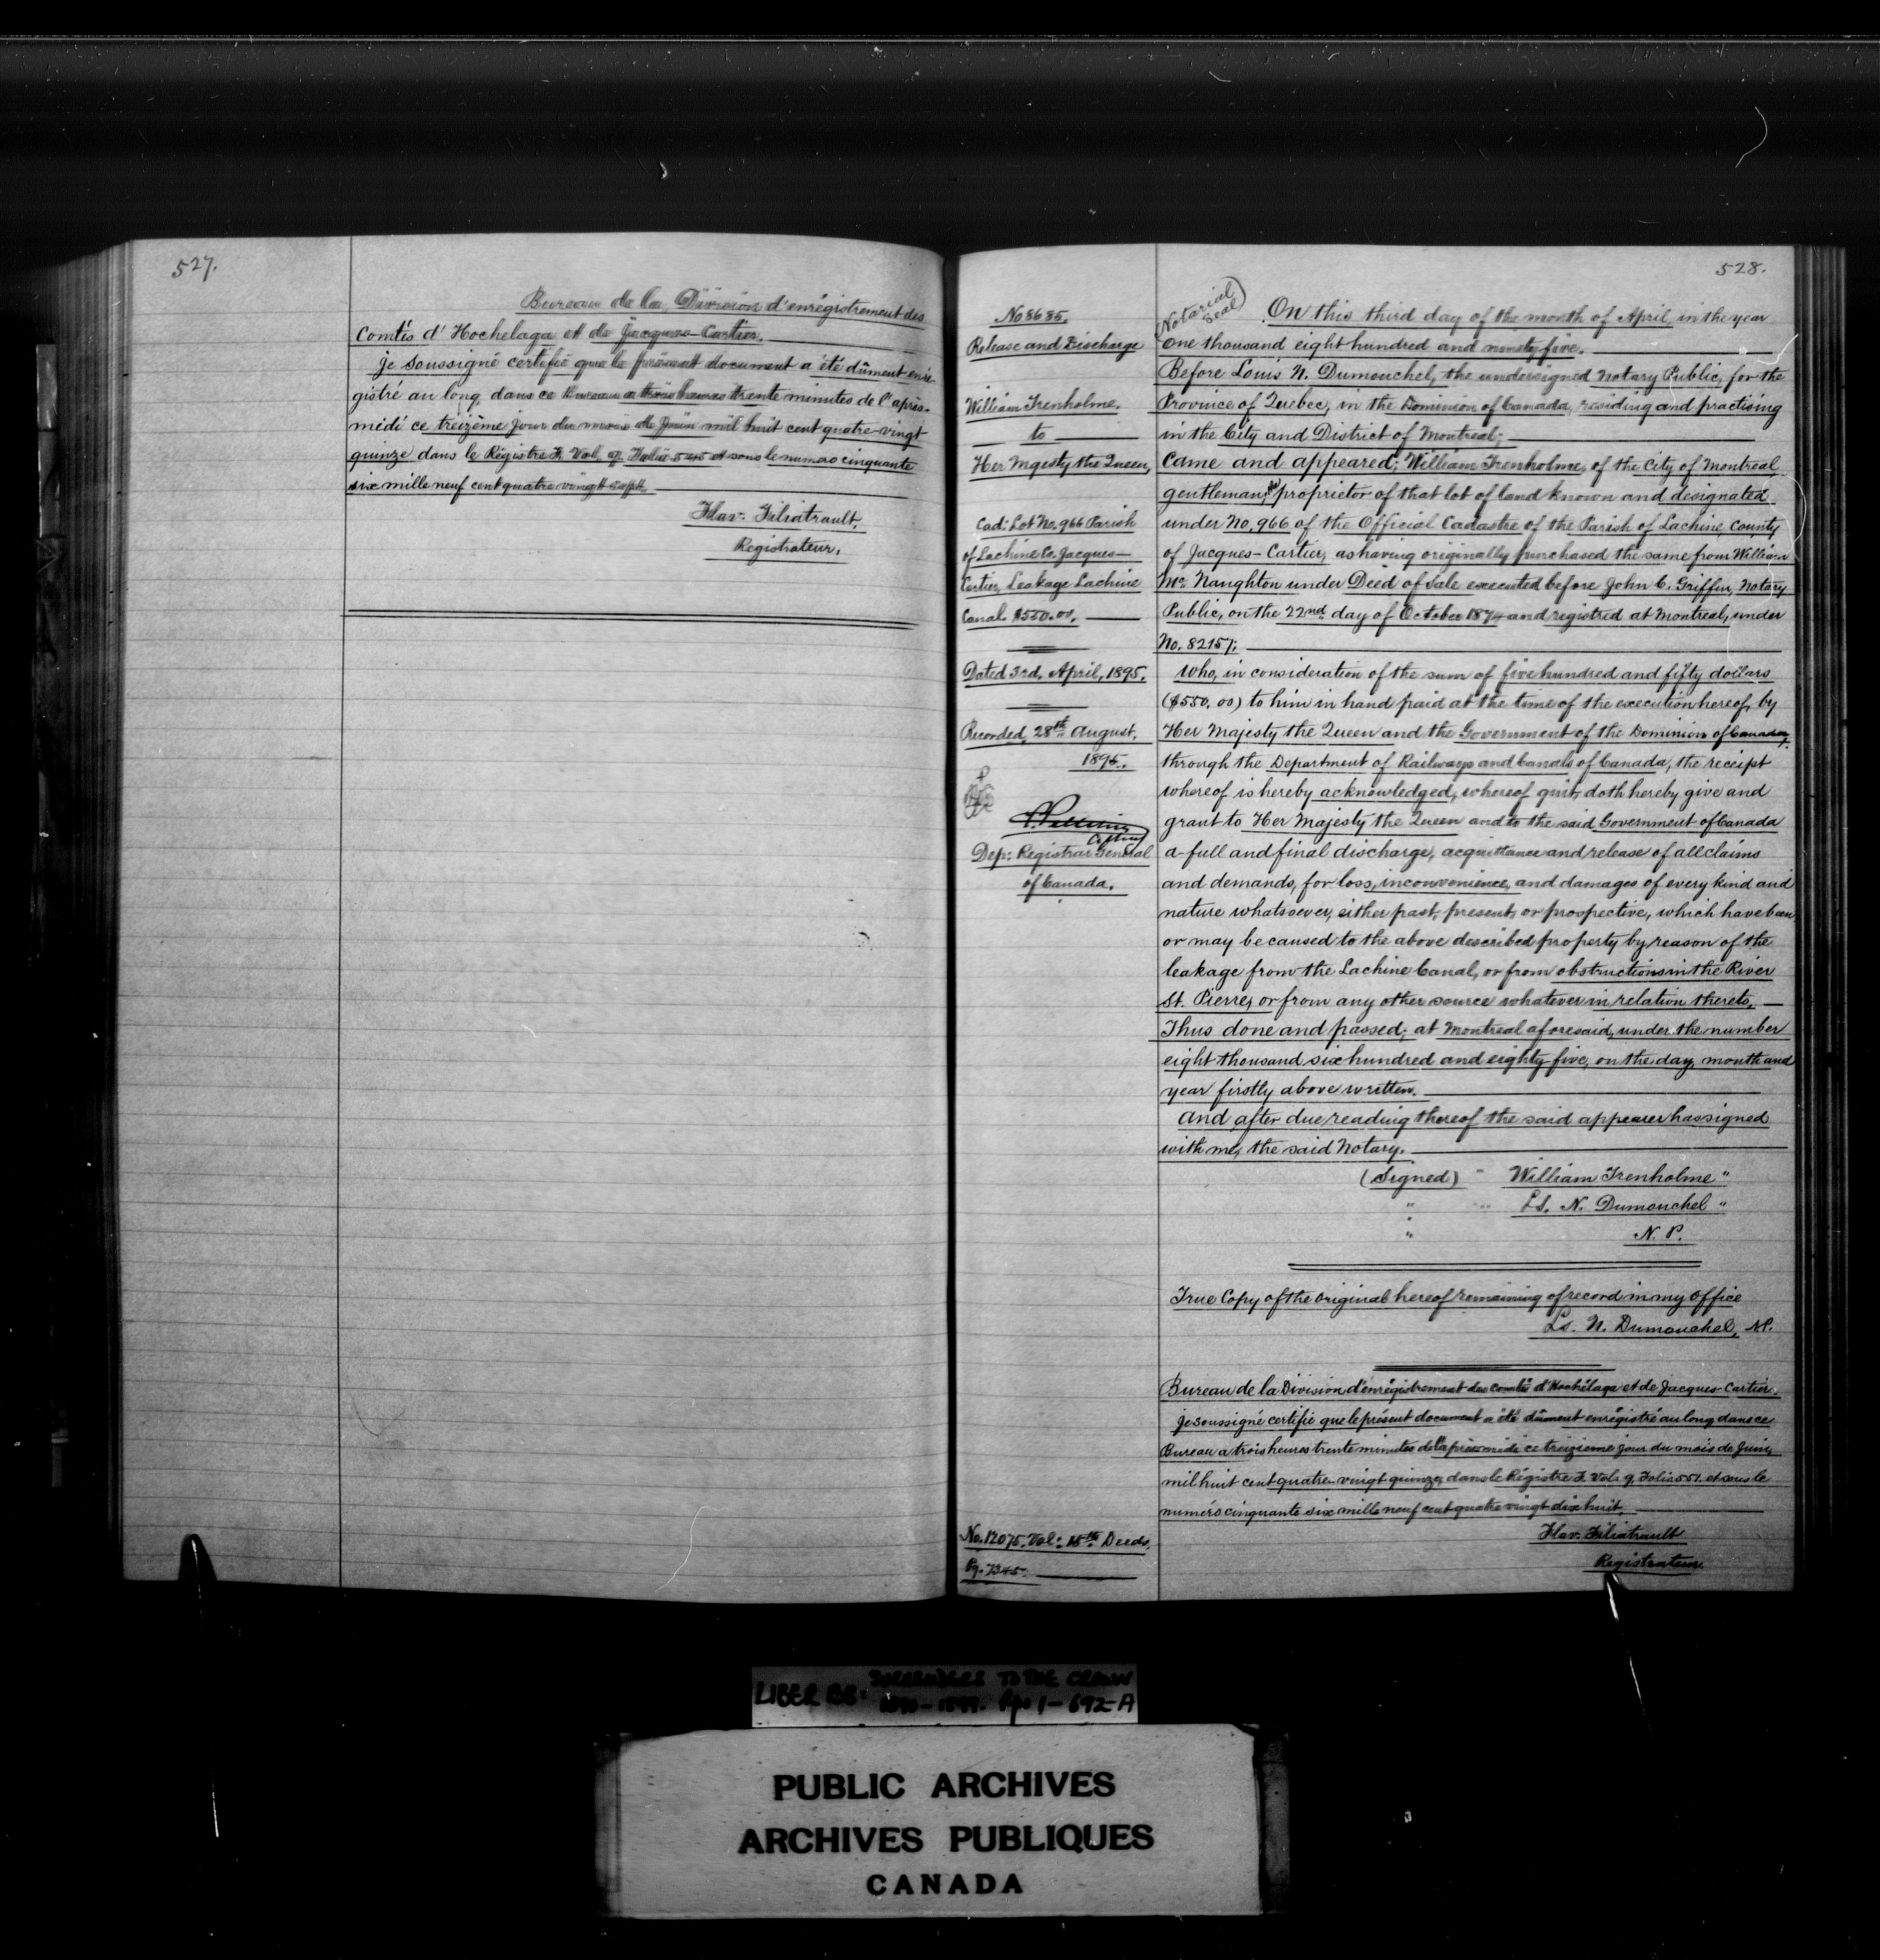 527.
Bureau de la Division d'enrégistrement des
Comtés d'Hochelaga et de Jacques-Cartier.
Je soussigné certifie que le présent document a été dûment enré-
gistré au long dans ce Bureau a trois heures trente minutes de l'après-
midi ce treizème jour du mois de Juin mil huit cent quatre-vingt
quinze dans le Régistre F. Vol. 9 Folio et sous le numero cinquante
six mille neuf cent quatre vingt
Flav: Filiatrault,
Registrateur,
528.
No 8685.
Release and Discharge
William Trenholme,
to
Her Mgesty the Queen,
Cad: Lot No, 966 Parish
of Lachine Co. Jacques-
Cartier, Leakage Lachine
Canal. $550.00,
Dated 3rd, April, 1895.
Recorded, 28th August,
1895.
Acting
Dep: Registrar General
of Canada.
No. 12075, Vol: 15th Deeds,
Pg. 7345.
Notarial
Seal
On this third day of the month of April, in the year
one thousand eight hundred and ninety five.
Before Louis N. Dumouchel, the undersigned Notary Public, for the
Province of Quebec, in the Dominion of Canada, residing and practising
in the City and District of Montreal;
Came and appeared; William Trenholme, of the City of Montreal
gentleman, the proprietor of that lot of land known and designated
under No, 966 of the Official Cadastre of the Parish of Lachine, County
of Jacques-Cartier, as having originally purchased the same from William
Mc Naughton under Deed of Sale executed before John C. Griffin, Notary
Public, on the 22nd day of October 1874 and registred at Montreal, under
No. 82157;
who, in consideration of the sum of five hundred and fifty dollars
($550.00) to him in hand paid at the time of the execution hereof, by
Her Majesty the Queen and the Government of the Dominion of Canada,
through the Department of Railways and Canals of Canada, the receipt
whereof is hereby acknowledged, whereof quit, doth hereby give and
grant to Her Majesty the Queen and to the said Government of Canada
a full and final discharge, acquittance and release of all claims
and demands, for loss, inconvenience, and damages of every kind and
nature whatsoever, either past, present, or prospective, which have been
or may be caused to the above described property by reason of the
leakage from the Lachine Canal, or from obstructions in the River
St. Pierre, or from any other source whatever in relation thereto,
Thus done and passed; at Montreal aforesaid, under the number
eight thousand six hundred and eighty five, on the day, month and
year firstly above written.
And after due reading thereof the said appearer has signed
with me, the said Notary.
(Signed) " William Trenholme "
" " Ls. N. Dumouchel "
" N. P.
True Copy of the original hereof remaining of record in my Office
Ls. N. Dumouchel, N.P.
Bureau de la Division d'enrégistrement des comtés d'Hochélaga et de Jacques-Cartier.
Je soussigné certifie que le présent document a été dûment enrégistré au long dans ce
Bureau a trois heures trente minutes de l'après midi ce treizieme jour du mois de Juin,
mil huit cent quatre-vingt quinze, dans le Régistre F. Vol. 9 Folio 551. et sous le
numéro cinquante six mille neuf cent quatre vingt dix huit,
Flav. Filiatrault
Registrateur.
LIBER BB: SURRENDERS TO THE CROWN
1890-1899. Pgs 1-692-A
PUBLIC ARCHIVES
ARCHIVES PUBLIQUES
CANADA